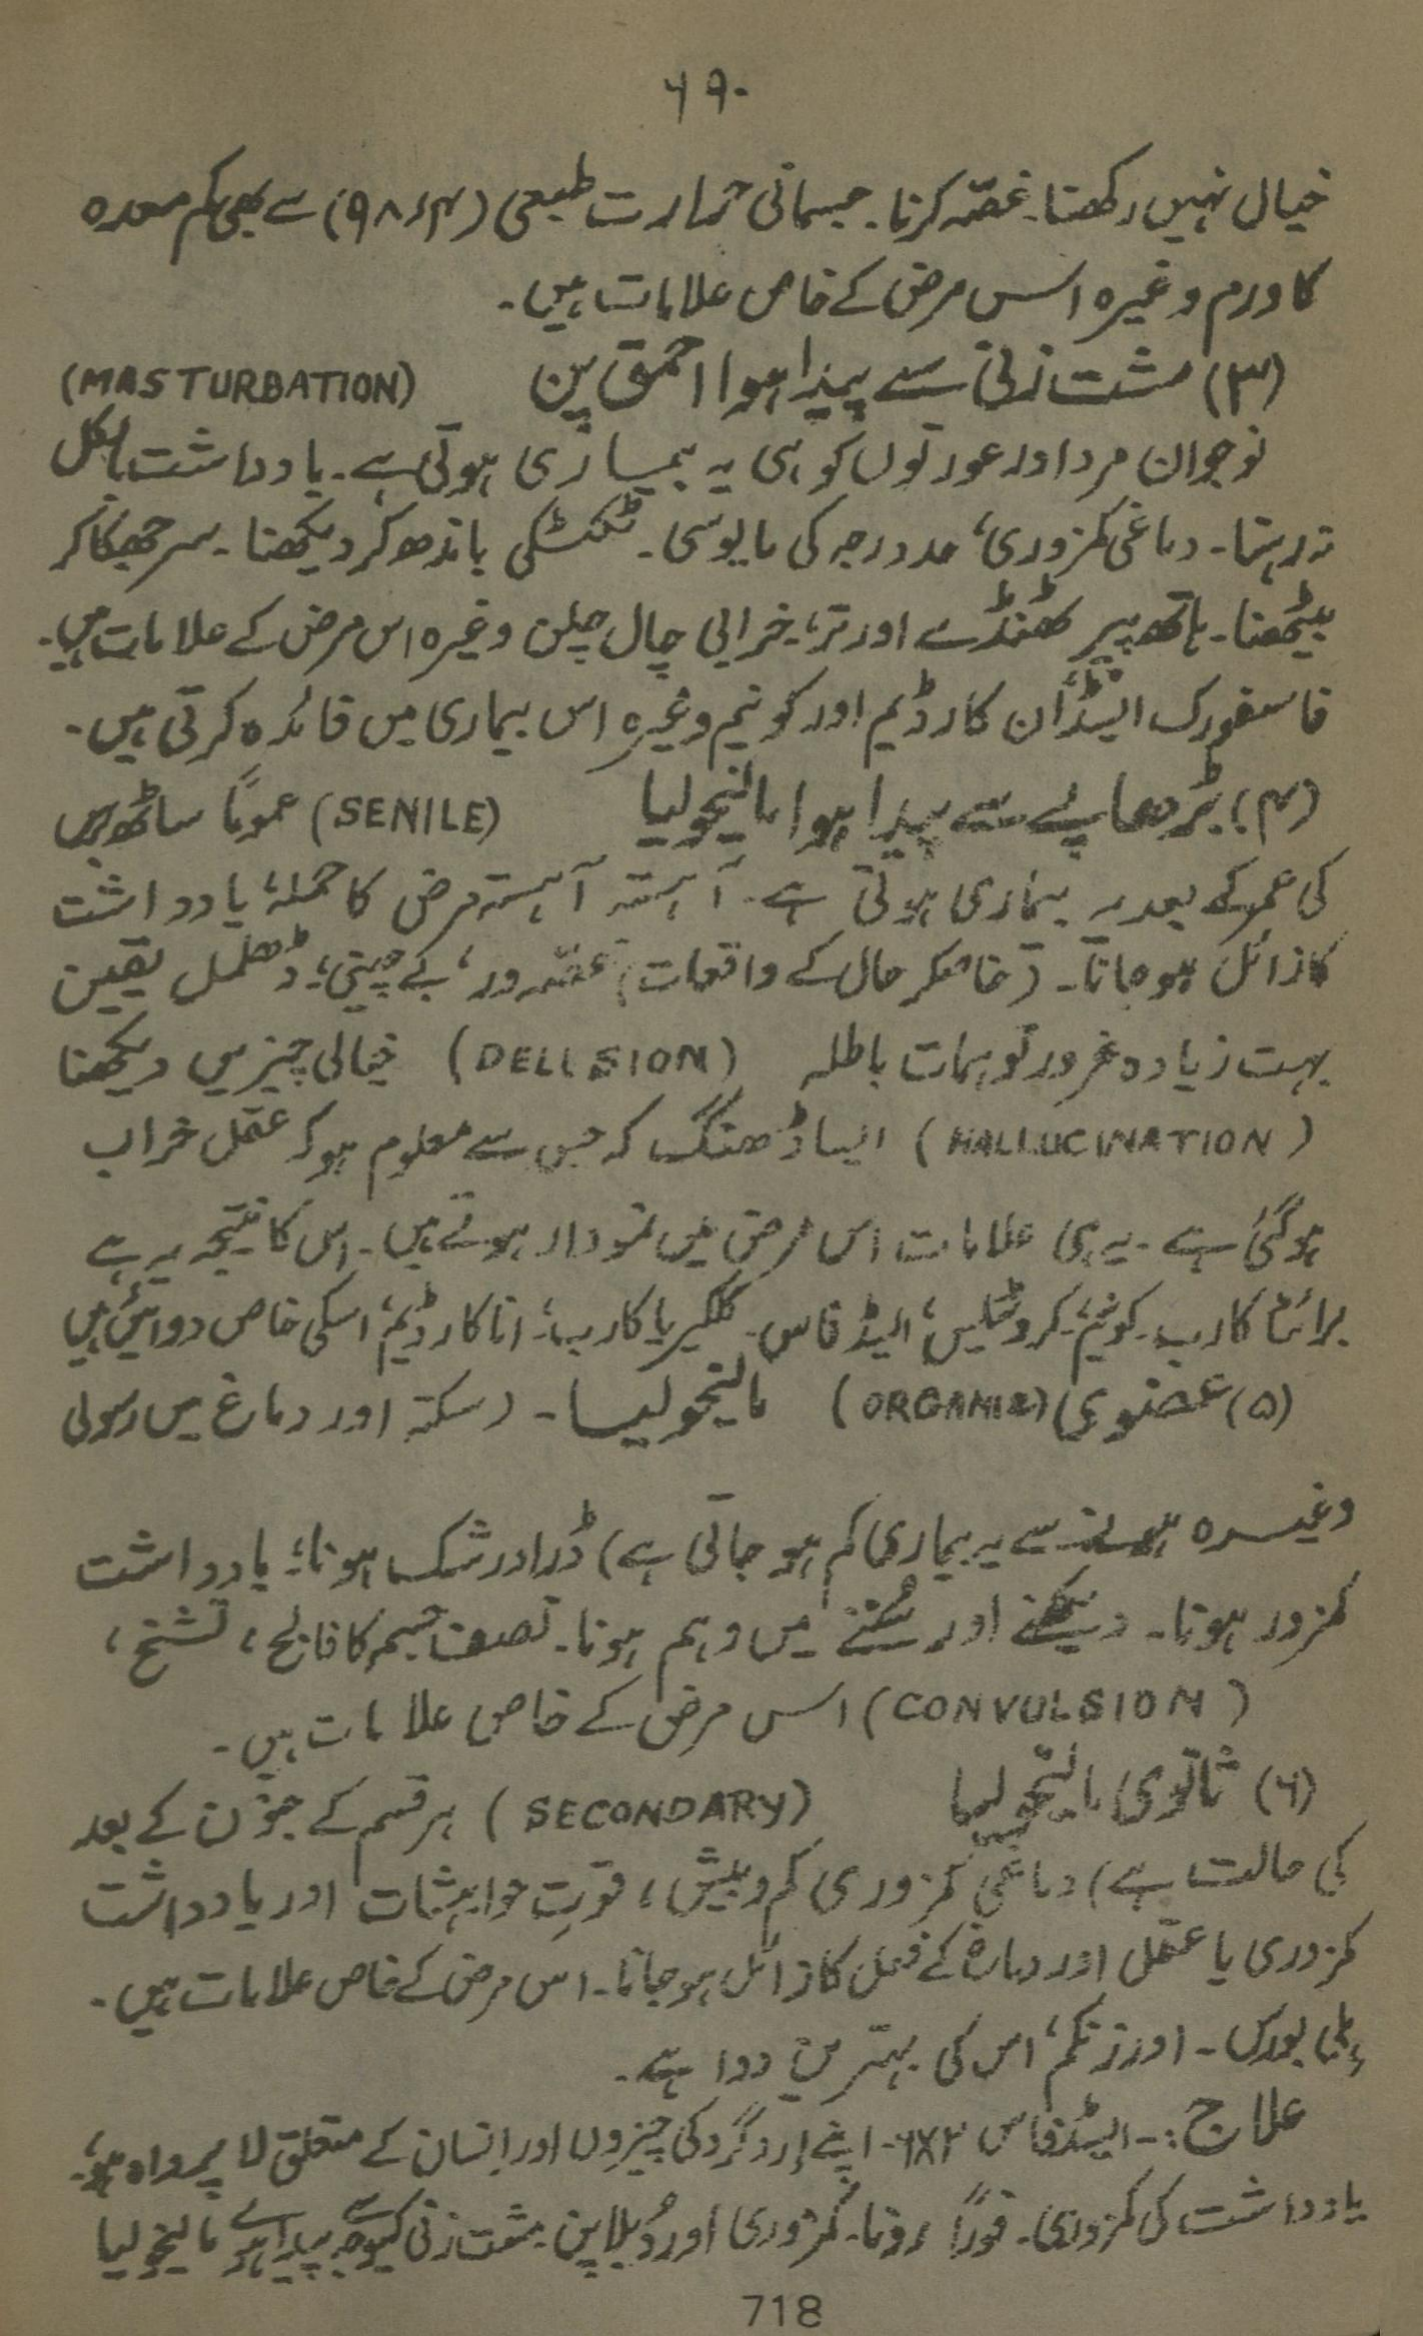 ۶۹۰
خیال نہیں رکھنا۔ غصّہ کرنا۔ جسمانی حرارت طبیعی (۹۸٫۴) سے بھی کم معدہ
کا ورم وغیرہ اس مرض کے خاص علامات ہیں۔
(۳) مشت زنی سے پیدا ہوا احمق پن (MASTURBATION)
نوجوان مرد اور عورتوں کو ہی یہ بیماری ہوتی ہے۔ یادداشت بالکل
نہ رہنا۔ دماغی کمزوری، حد درجہ کی مایوسی۔ ٹکٹکی باندھ کر دیکھنا۔ سر جھکا کر
بیٹھنا۔ ہاتھ پیر ٹھنڈے اور تر، خرابی چال چلن وغیرہ اس مرض کے علامات ہیں۔
فاسفورک ایسڈ، ان کارڈیم اور کونیم وغیرہ اس بیماری میں فائدہ کرتی ہیں۔
(۴) بڑھاپے سے پیدا ہوا مالیخولیا (SENILE) عموماً ساٹھ برس
کی عمر کے بعد یہ بیماری ہوتی ہے۔ آہستہ آہستہ مرض کا حملہ، یادداشت
کا زائل ہو جانا۔ (خاصکر حال کے واقعات) غصّہ ور، بے چینی، ڈھلمل یقین
بہت زیادہ غرور توہمات باطلہ (DELLSION) خیالی چیزیں دیکھنا
(HALLUCINATION) ایسا ڈھنگ کہ جس سے معلوم ہو کہ عقل خراب
ہو گئی ہے۔ یہ ہی علامات اس مرض میں نمودار ہوتے ہیں۔ اس کا نتیجہ یہ ہے
برائٹا کارب۔ کونیم، کروٹیلس، ایسڈ فاس۔ کلکیریا کارب، اناکارڈیم، اسکی خاص دوائیں ہیں
(۵) عضوی (ORGANIC) مالیخولیا۔ (سکتہ اور دماغ میں رسولی
وغیرہ ہونے سے یہ بیماری کم ہو جاتی ہے) ڈر اور شک ہونا، یادداشت
کمزور ہونا۔ دیکھنے اور سُننے میں وہم ہونا۔ نصف جسم کا فالج، تشنج،
(CONVULSION) اس مرض کے خاص علامات ہیں۔
(۶) ثانوی مالیخولیا (SECONDARY) ہر قسم کے جنون کے بعد
کی حالت ہے) دماغی کمزوری کم و بیش، قوتِ خواہشات اور یادداشت
کمزوری یا عقل اور دماغ کے فعل کا زائل ہو جانا۔ اس مرض کے خاص علامات ہیں۔
ہلی بورس۔ اور زنکم، اس کی بہترین دوا ہے۔
علاج:۔ ایسڈ فاس ۲x۶۔ اپنے اِرد گرد کی چیزوں اور انسان کے متعلق لا پرواہ ہو،
یادداشت کی کمزوری۔ فوراً رونا۔ کمزوری اور دُبلا پن۔ مشت زنی کیوجہ سے پیدا ہوئے مالیخولیا
718